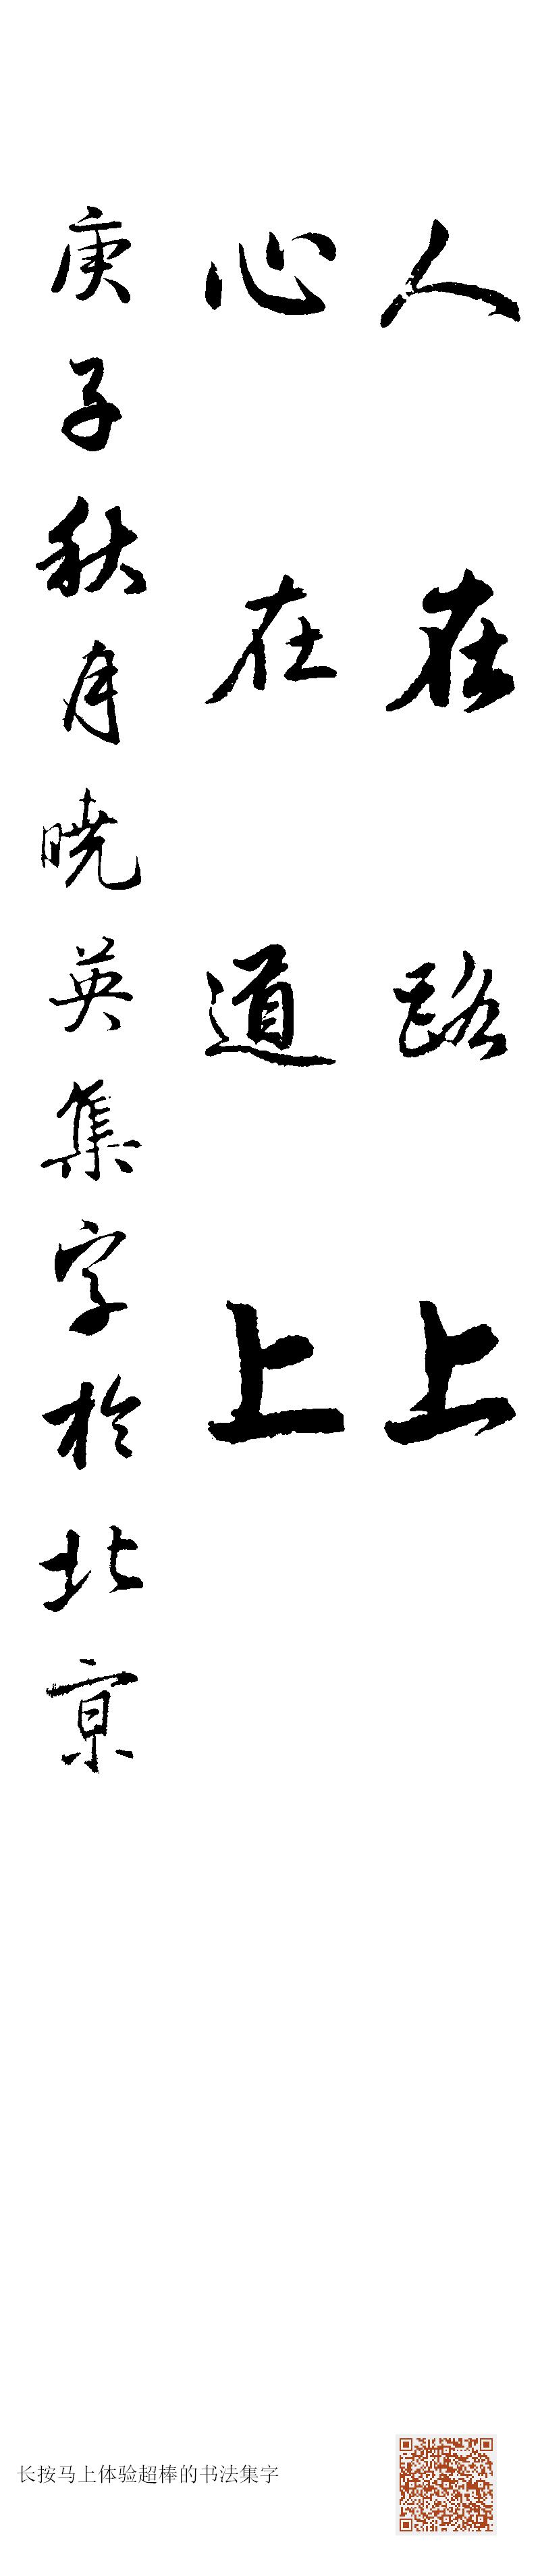 人在路上
心在道上
庚子秋月晓英集字於北京
长按马上体验超棒的书法集字